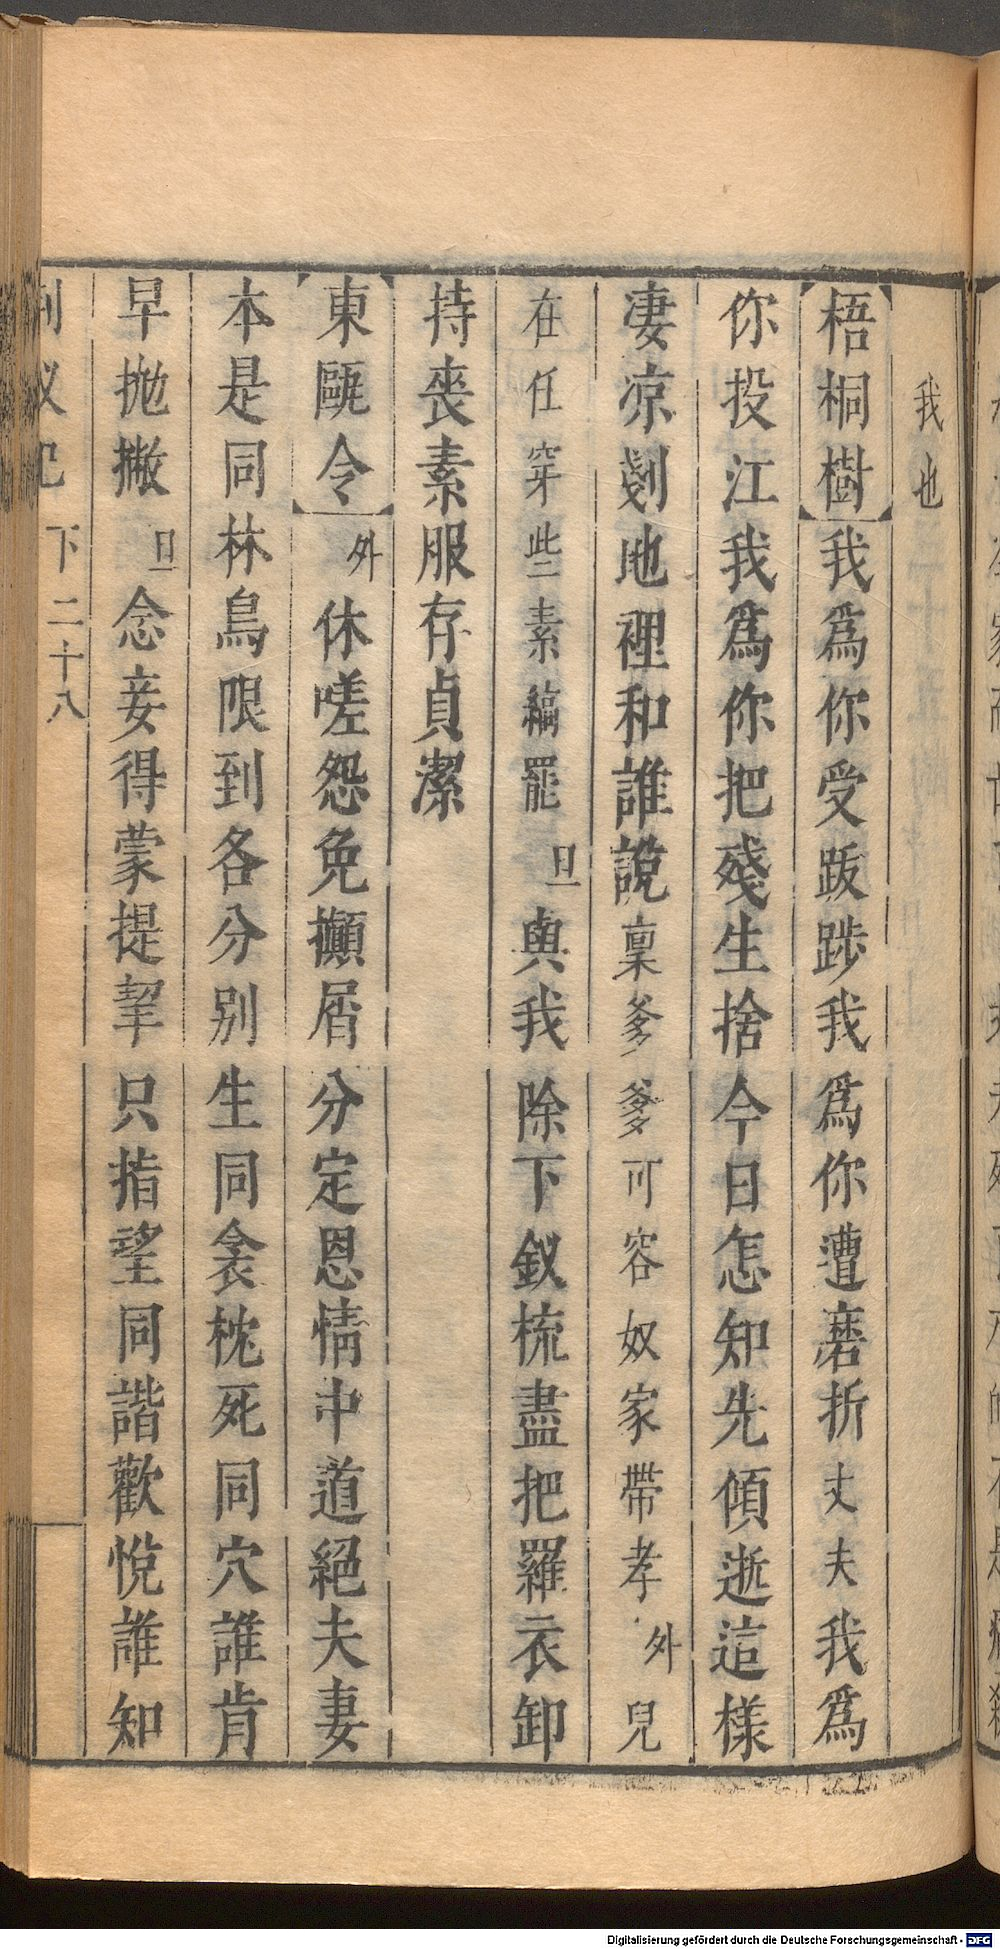 我也
梧桐樹我爲你受跋踄我爲你遭磨折丈夫我爲
你投江我爲你把殘生捨今日怎知先傾逝這樣
凄凉剗地裡和誰說稟爹爹可容奴家帶孝外兒
在任穿些素縞罷旦與我除下釵梳盡把羅衣卸
持喪素服存貞潔
東甌令外休嗟怨免攧屑分定恩情中道絕夫妻
本是同林鳥限到各分別生同衾枕死同穴誰肯
早抛撇旦念妾得蒙提挈只指望同諧歡悅誰知
下二十八
Digitalisierung gefördert durch die Deutsche Forschungsgemeinschaft - DFG